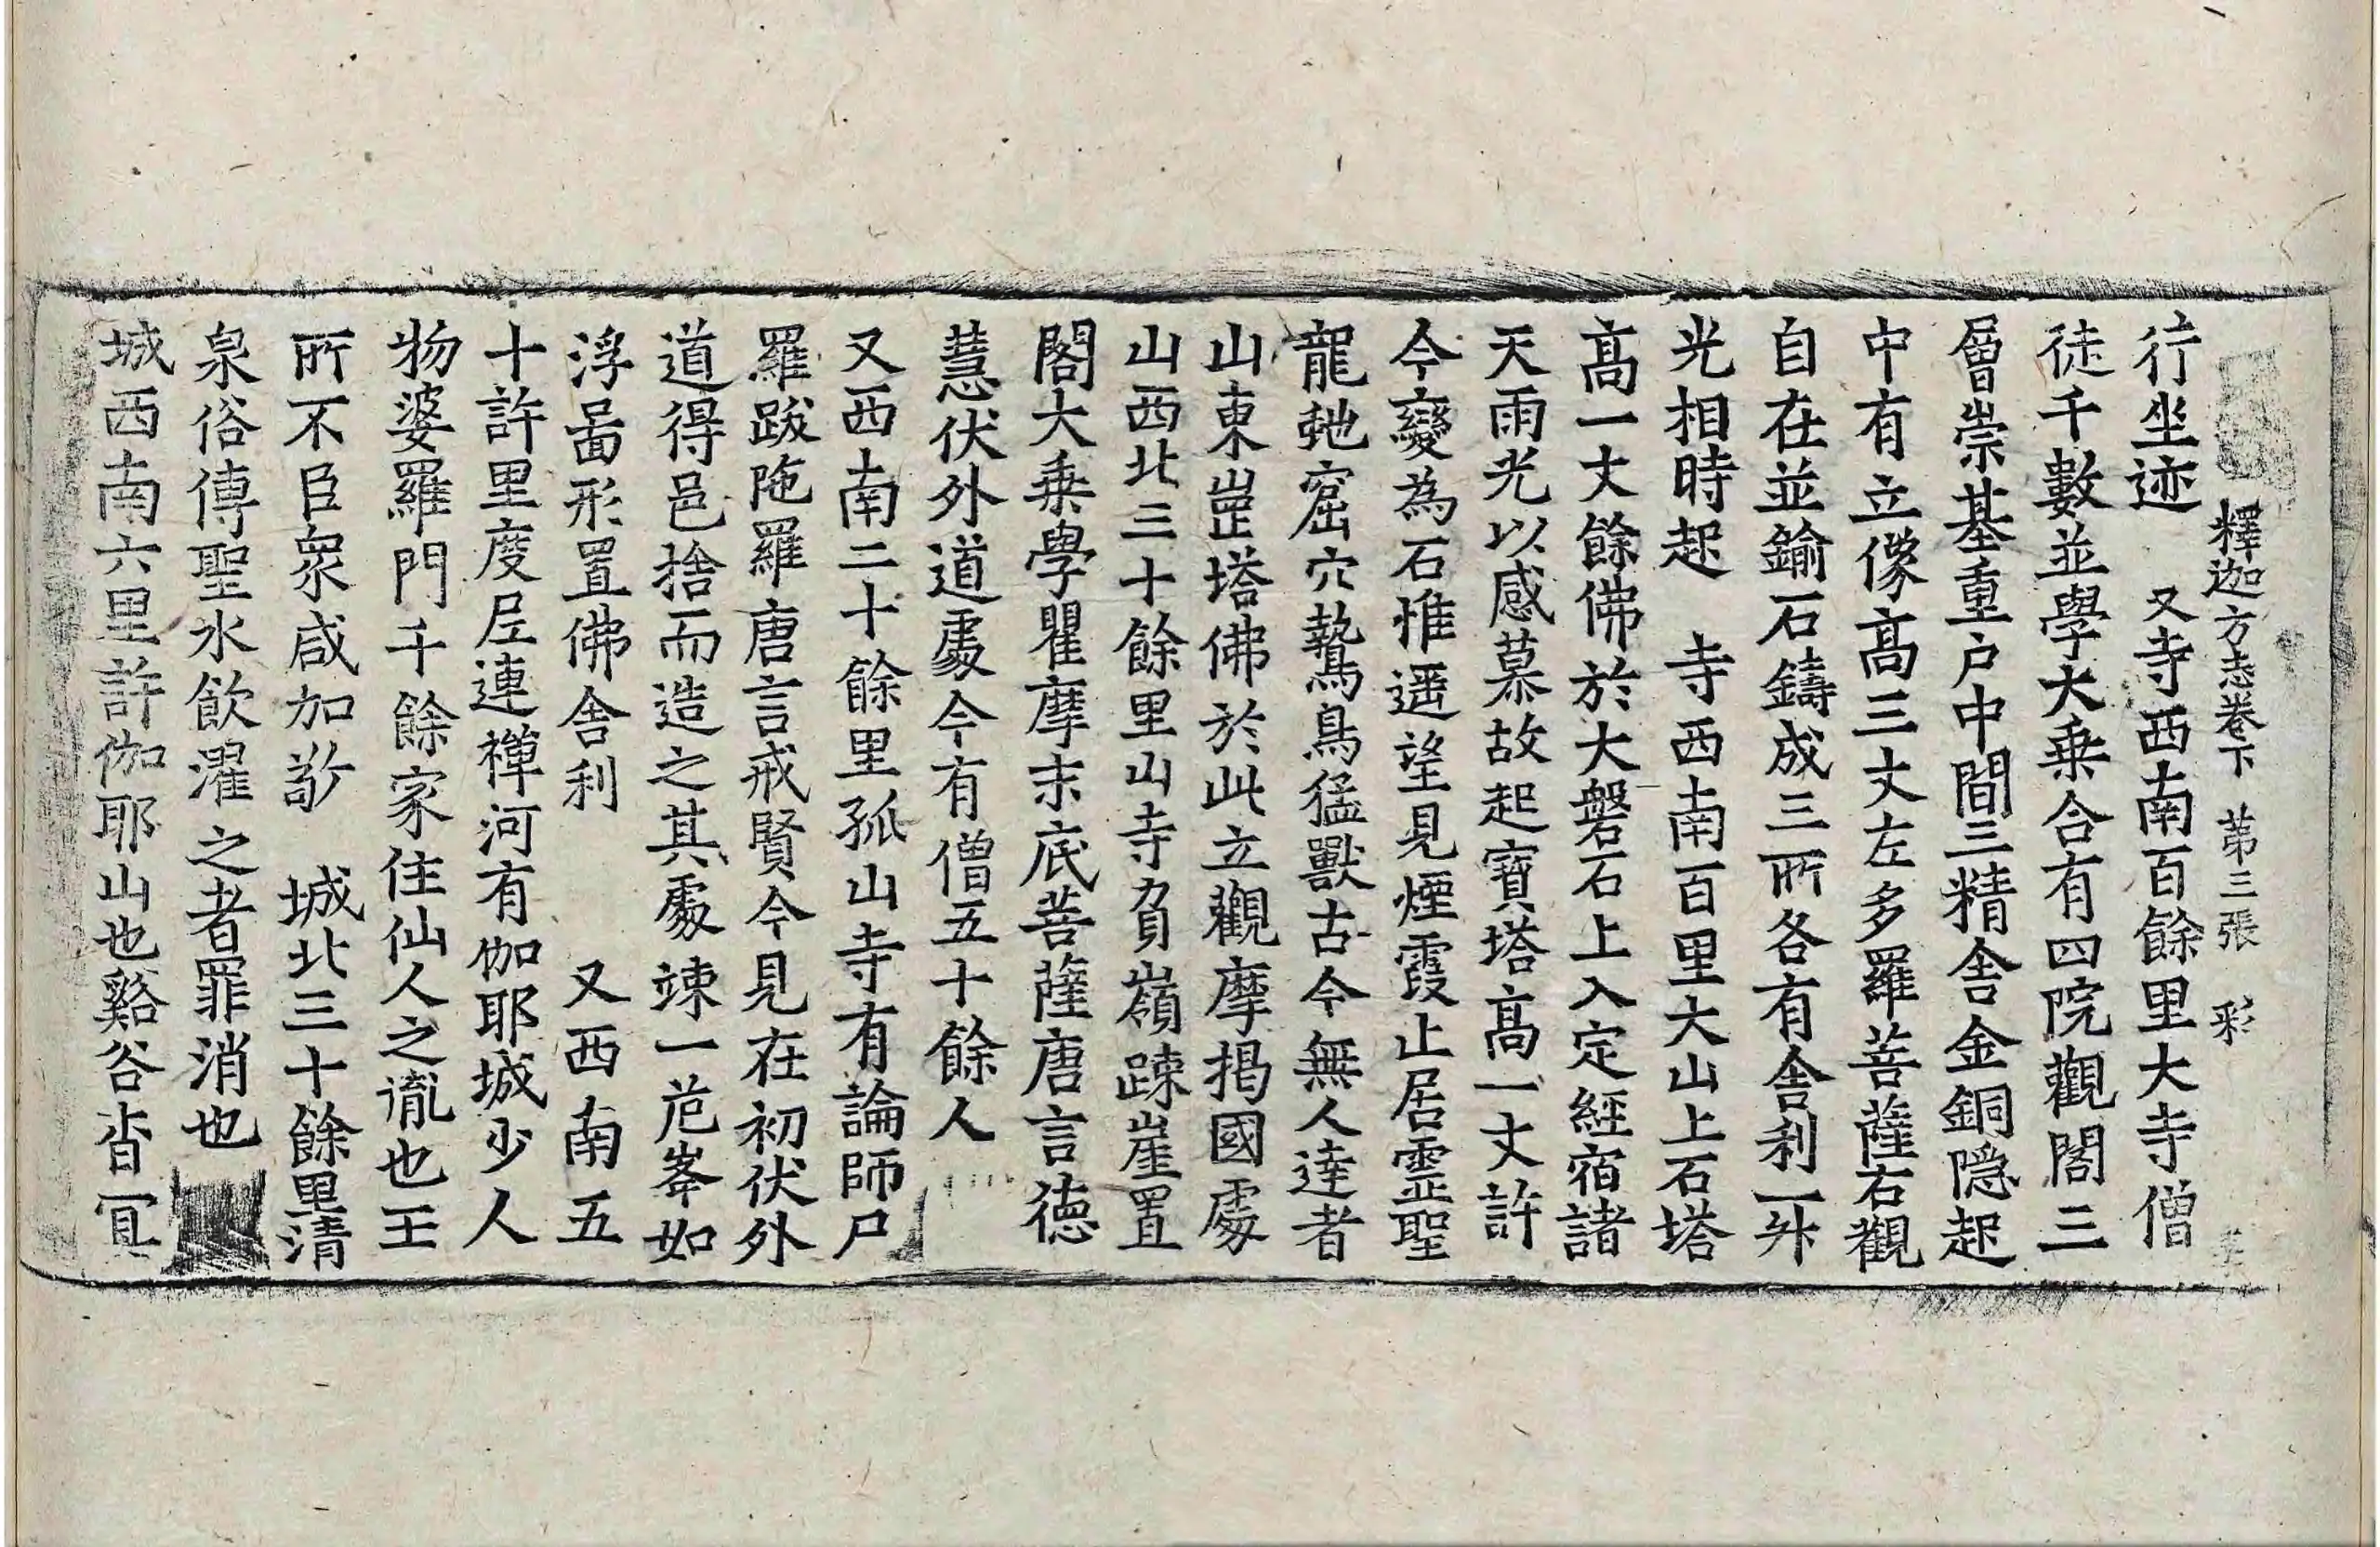 釋迦方志卷下 第三張 彩
行坐迹 又寺西南百餘里大寺僧
徒千數並學大乗合有四院觀閣三
層崇基重戶中間三精舍金銅隱起
中有立像髙三丈左多羅菩薩右觀
自在並鍮石鑄成三所各有舍利一升
光相時起 寺西南百里大山上石塔
髙一丈餘佛於大磐石上入定經宿諸
天雨光以感慕故起寶塔髙一丈許
今變為石惟遥望見煙霞止居靈聖
龍虵窟穴鷙鳥猛獸古今無人達者
山東崗塔佛於此立觀摩揭國處
山西北三十餘里山寺負嶺踈崖置
閣大乗學瞿摩末底菩薩唐言德
慧伏外道處今有僧五十餘人
又西南二十餘里孤山寺有論師尸
羅跋陁羅唐言戒賢今見在初伏外
道得邑捨而造之其處竦一危峯如
浮圖形置佛舍利 又西南五
十許里度尼連禪河有伽耶城少人
物婆羅門千餘家住仙人之胤也王
所不臣衆咸加敬 城北三十餘里清
泉俗傳聖水飲濯之者罪消也
城西南六里許伽耶山也谿谷杳冥